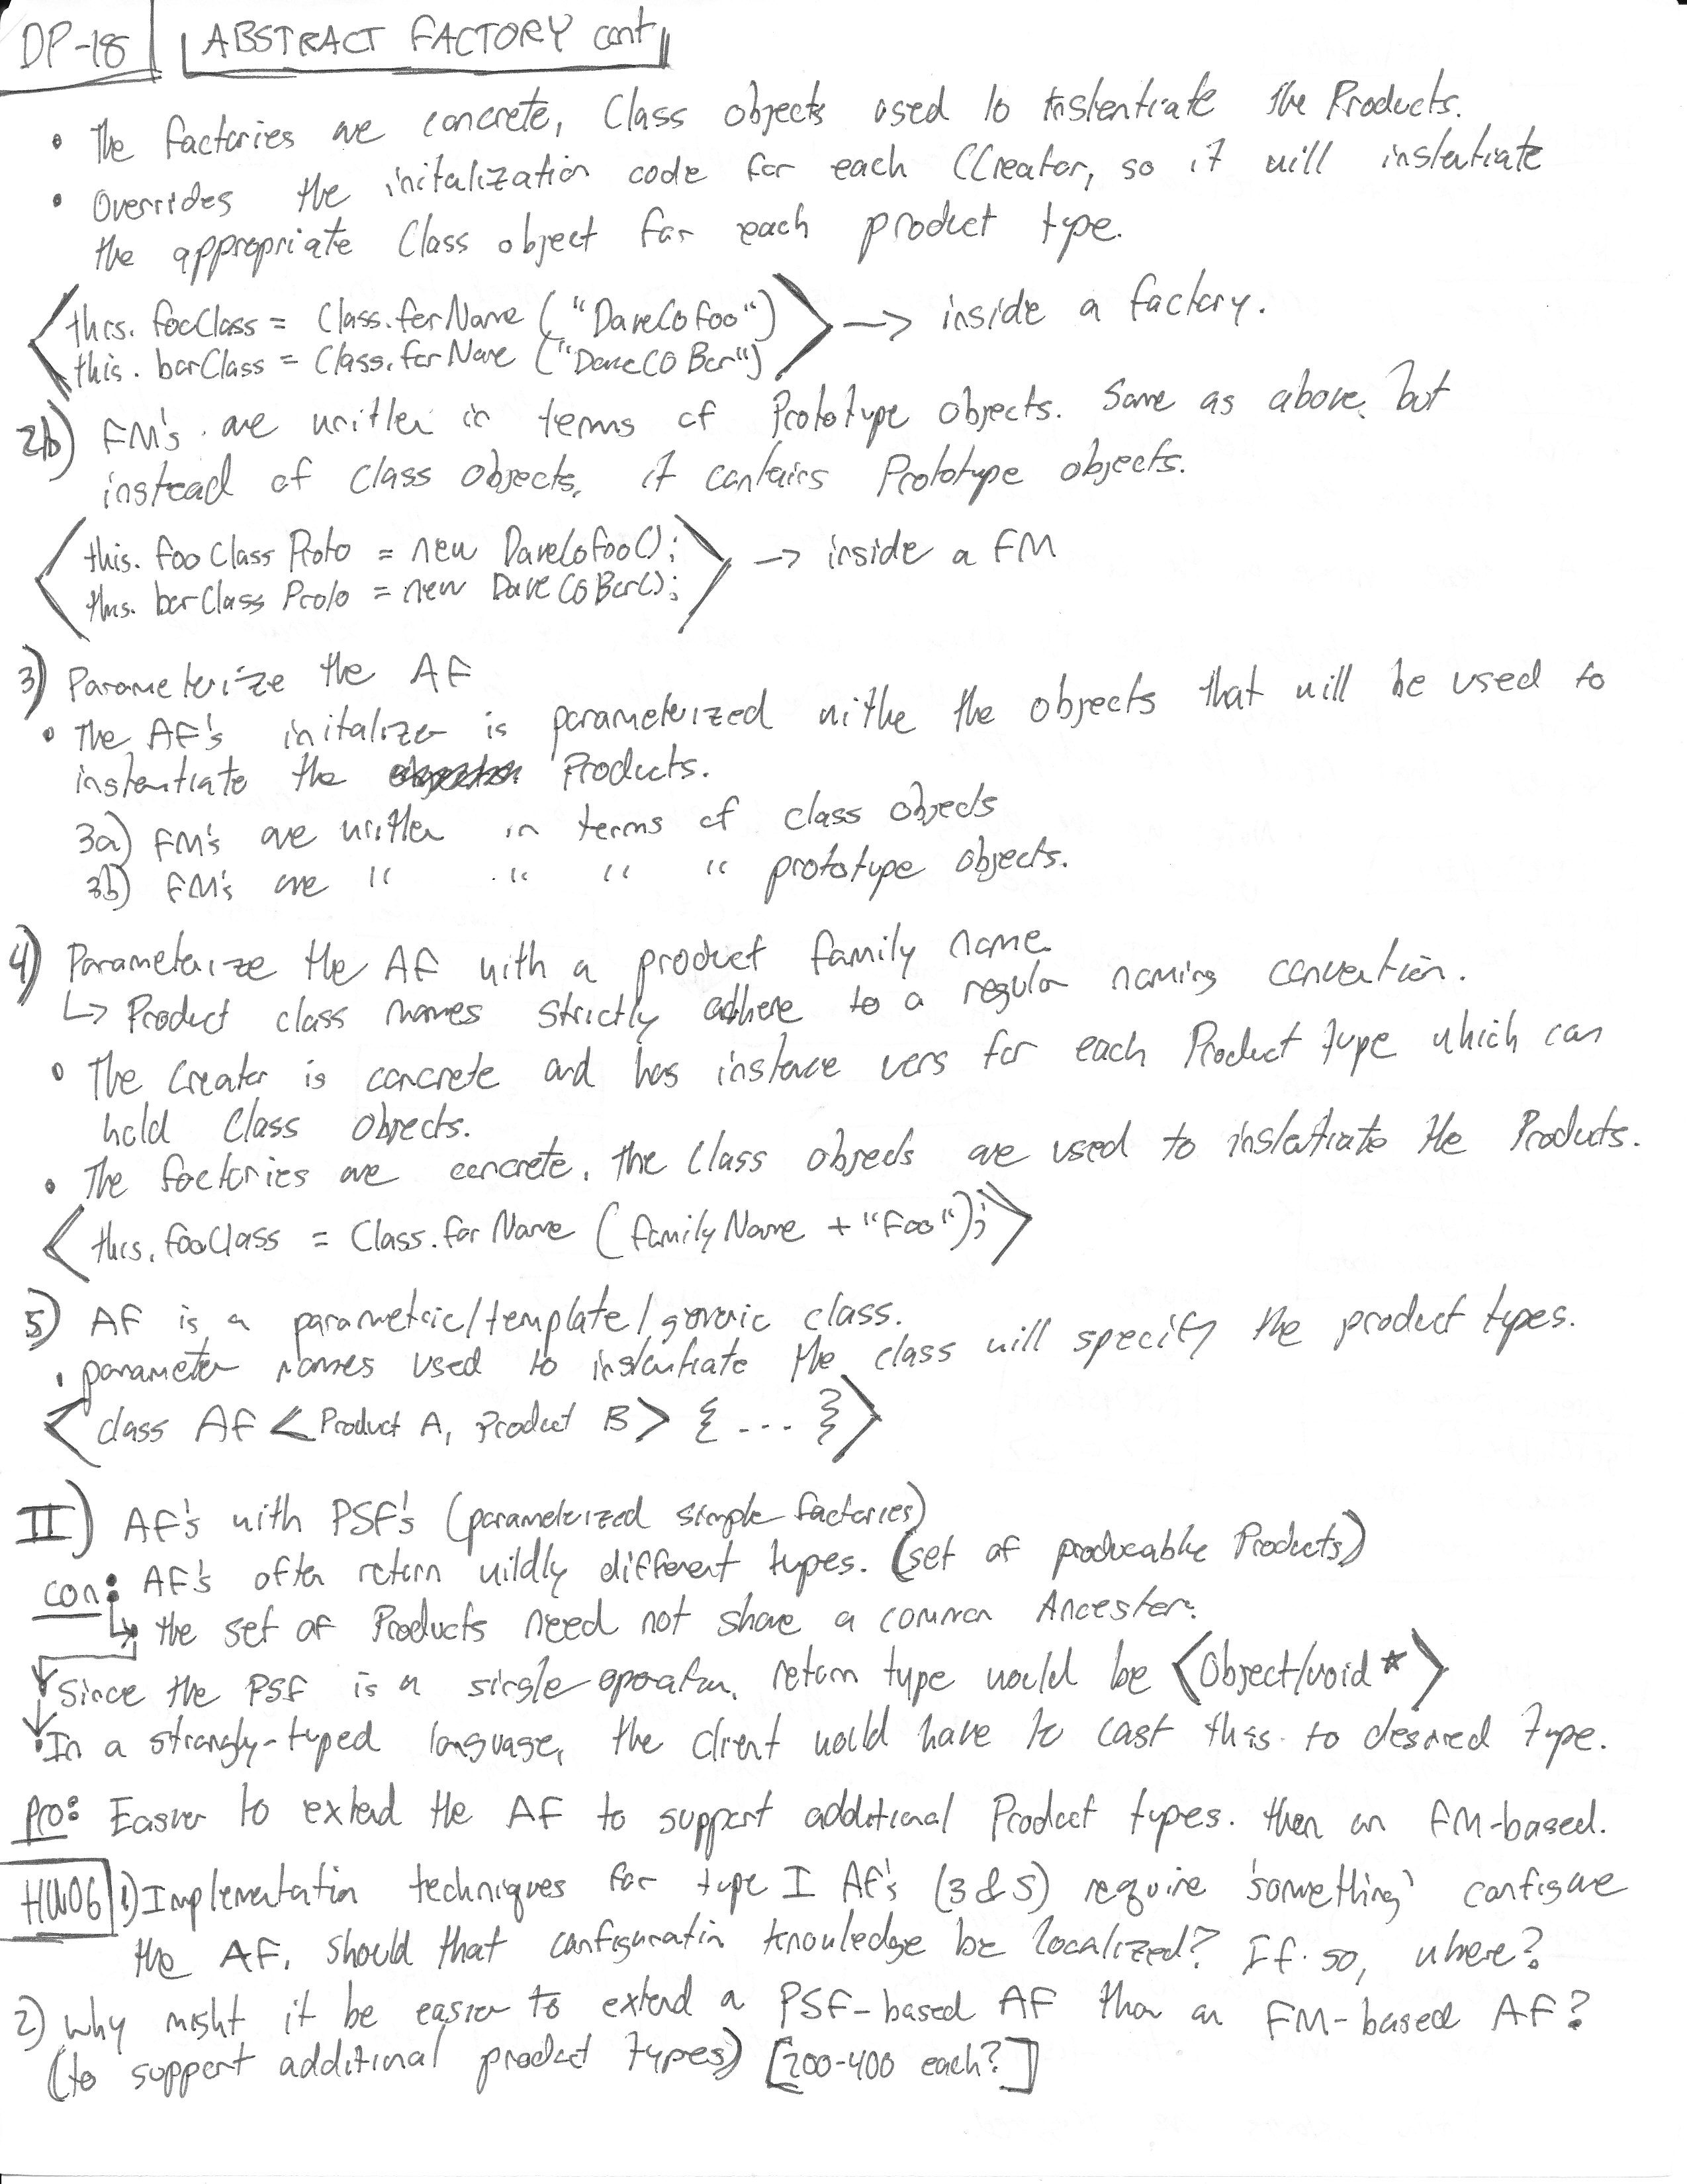 DP-18 ABSTRACT FACTORY cont
• The factories are concrete, Class objects used to instentiate the Products.
• Overrides the initalization code for each CCreator, so it will instatiate
the appropriate Class object for each product type.
this.fooClass = Class.forName ("DaveCoFoo") → inside a factory.
this.barClass = Class.forName ("DaveCOBar")
2b) FM's are written in terms of Prototype objects. Same as above, but
instead of Class Objects, it contains Prototype objects.
this.fooClassProto = new DaveCoFoo(); → inside a FM
this.barClassProto = new DaveCOBar();
3) Parameterize the AF
• The AF's initalizer is parameterized withe the objects that will be used to
instentiate the Products.
3a) FM's are written in terms of class objects
3b) FM's are " " " " prototype objects.
4) Parameterize the AF with a product family name
↳ Product class names strictly adhere to a regular naming convention.
• The Creator is concrete and has instance vars for each Product type which can
hold Class Objects.
• The factories are concrete, the Class objects are used to instatiate the Products.
< this.fooClass = Class.forName (familyName + "Foo"); >
5) AF is a parametric/template/generic class.
• parameter names used to instantiate the class will specify the product types.
< class AF < Product A, Product B > { ... } >
II) AF's with PSF's (parameterized simple factories)
con: AF's often return wildly different types. (set of producable Products)
↳ the set of Products need not share a common Ancester.
Since the PSF is a single operation, return type would be <Object/void*>
In a strongly-typed language, the client would have to cast this to desired type.
pro: Easier to extend the AF to support additional Product types. then an FM-based.
HW06 1) Implementation techniques for type I AF's (3 & 5) require 'something' configure
the AF. Should that configuration knowledge be localized? If so, where?
2) Why might it be easier to extend a PSF-based AF than an FM-based AF?
(to support additional product types) [200-400 each?]